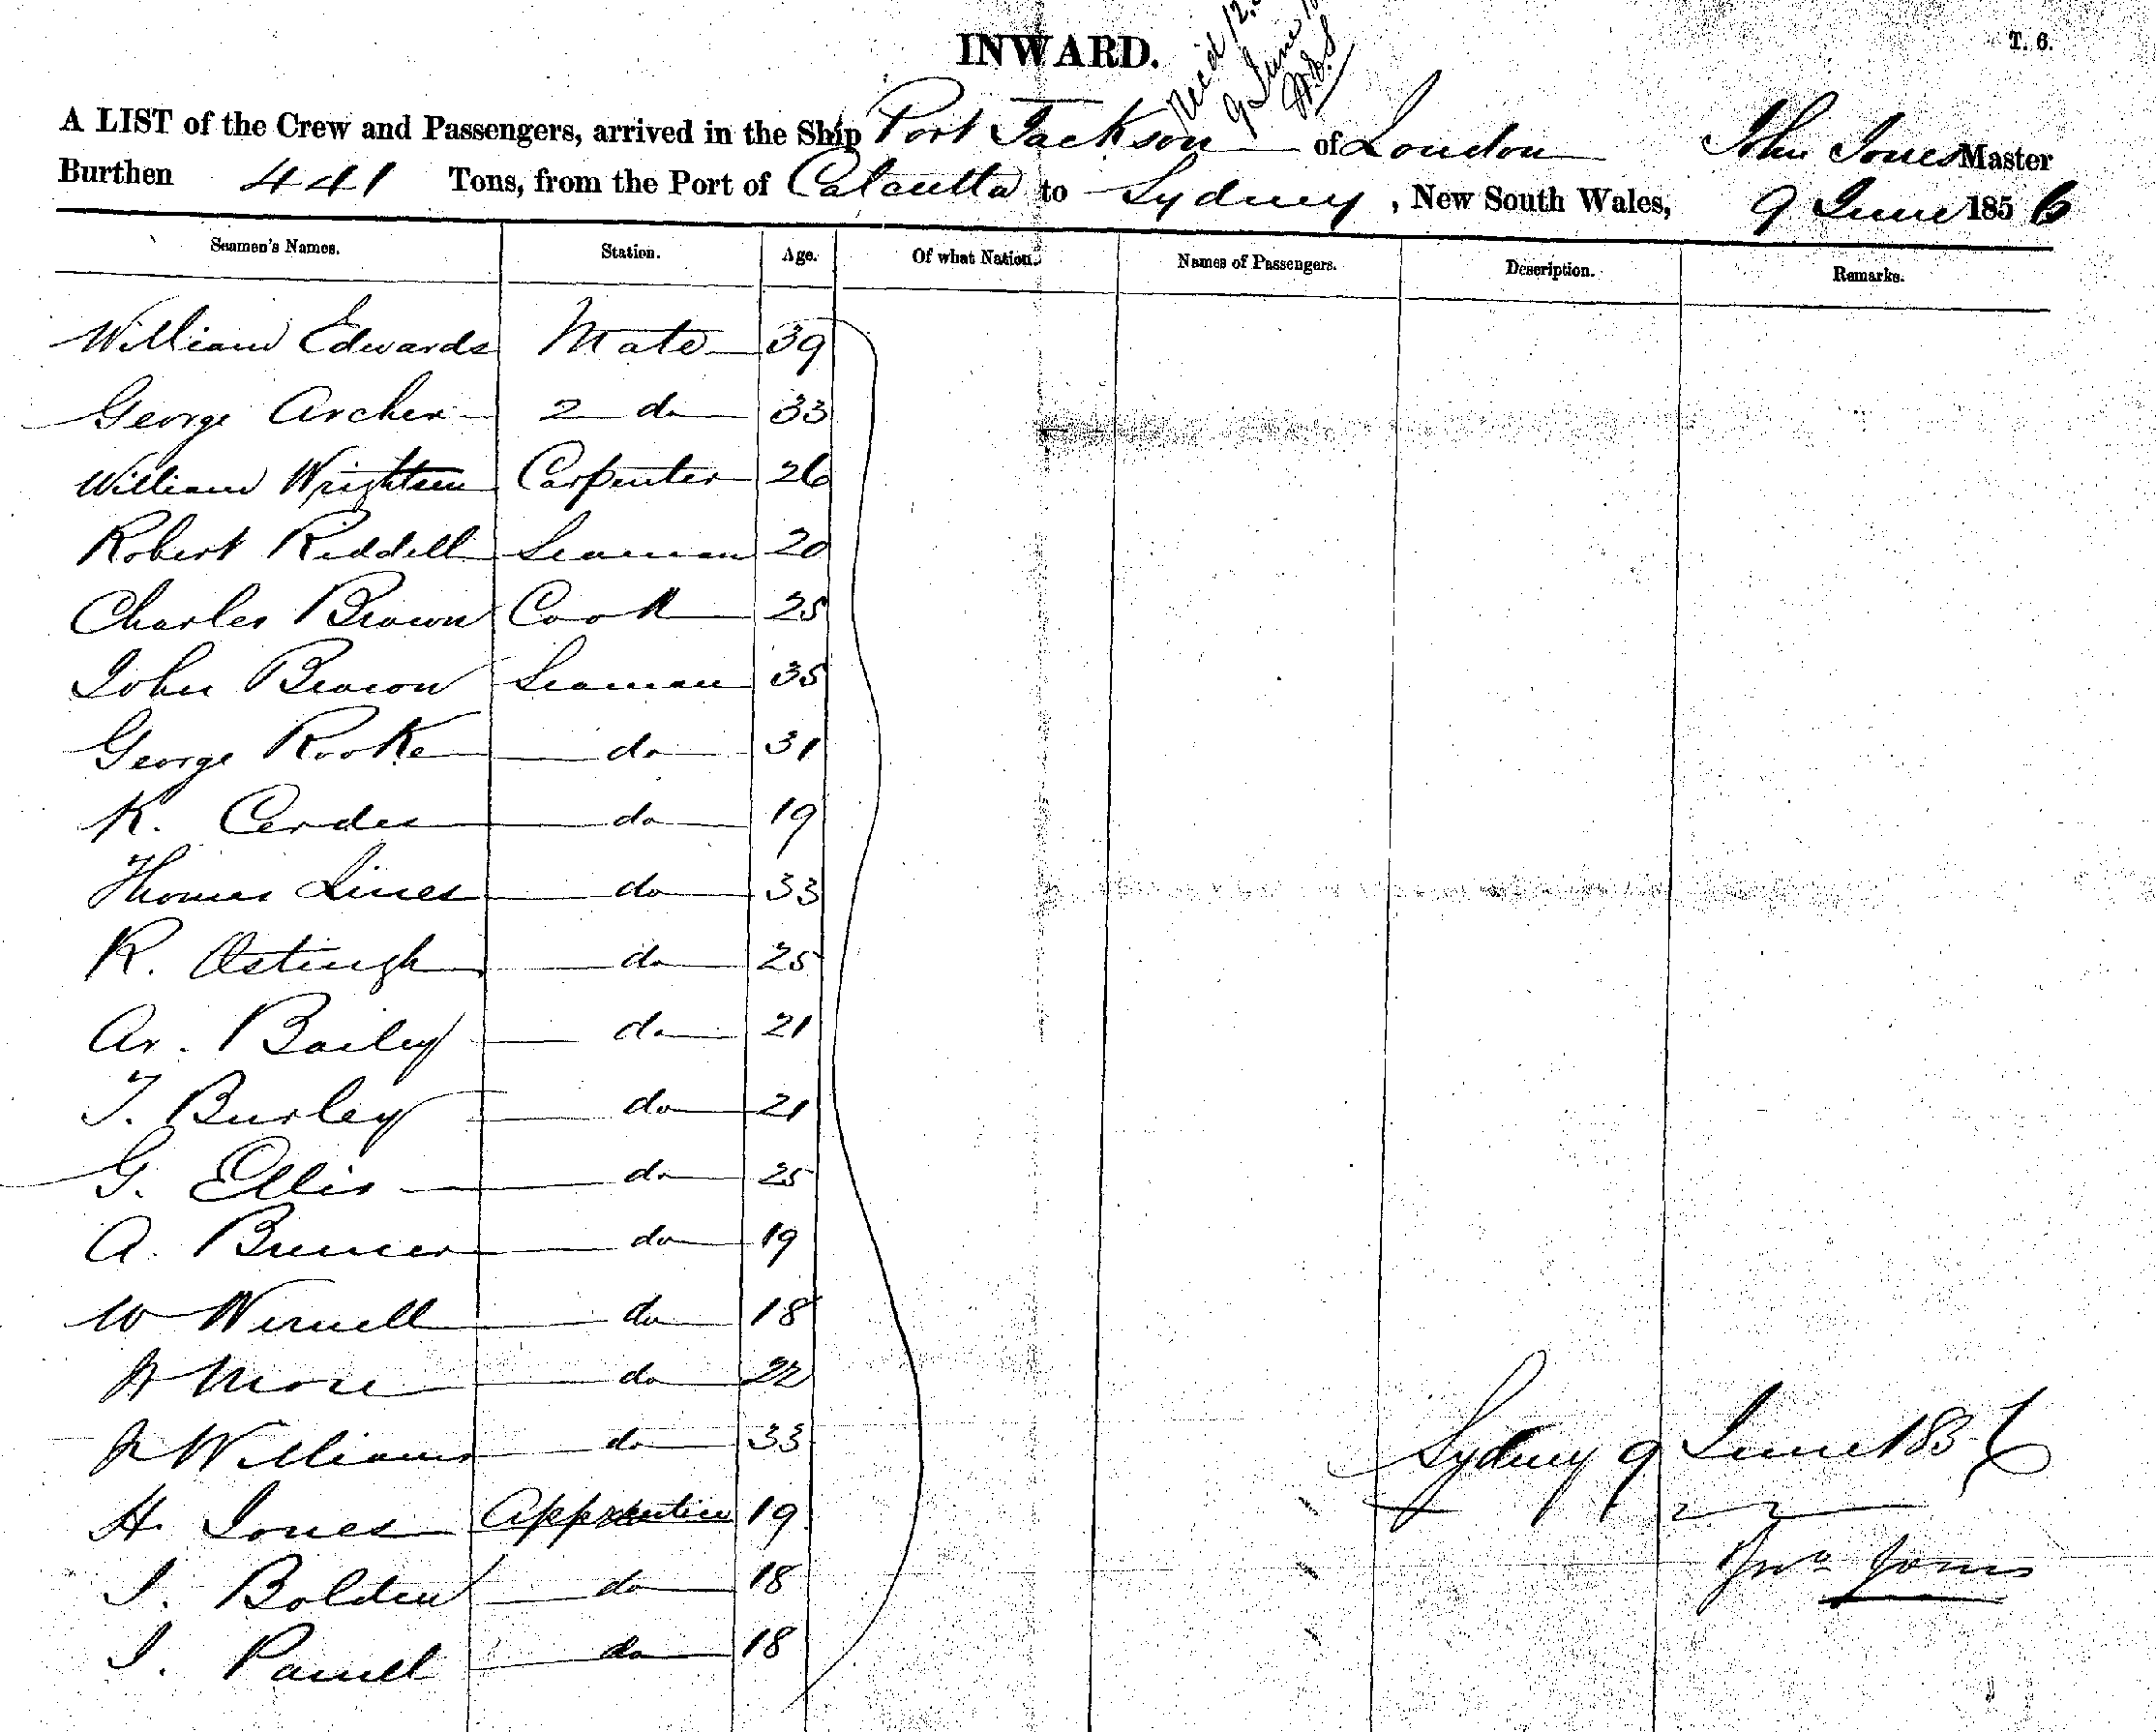 INWARD.
T. 6.
Rec'd 12.
9 June
A LIST of the Crew and Passengers, arrived in the Ship Port Jackson of London John Jones Master
Burthen 441 Tons, from the Port of Calcutta to Sydney, New South Wales, 9 June 1856
Seamen's Names. Station. Age. Of what Nation. Names of Passengers. Description. Remarks.
William Edwards Mate 39
George Archer 2 do 33
William Wrightson Carpenter 26
Robert Riddell Seaman 20
Charles Brown Cook 25
John Brown Seaman 35
George Rooke do 31
K. Cerdes do 19
Thomas Lines do 33
R. Ostingh do 25
Ar. Bailey do 21
T. Burley do 21
G. Ellis do 25
A. Bruner do 19
W Wernell do 18
More do 22
Williams do 33
H. Jones Apprentice 19
J. Bolden do 18
J. Parnell do 18
Sydney 9 June 1856
Jno Jones